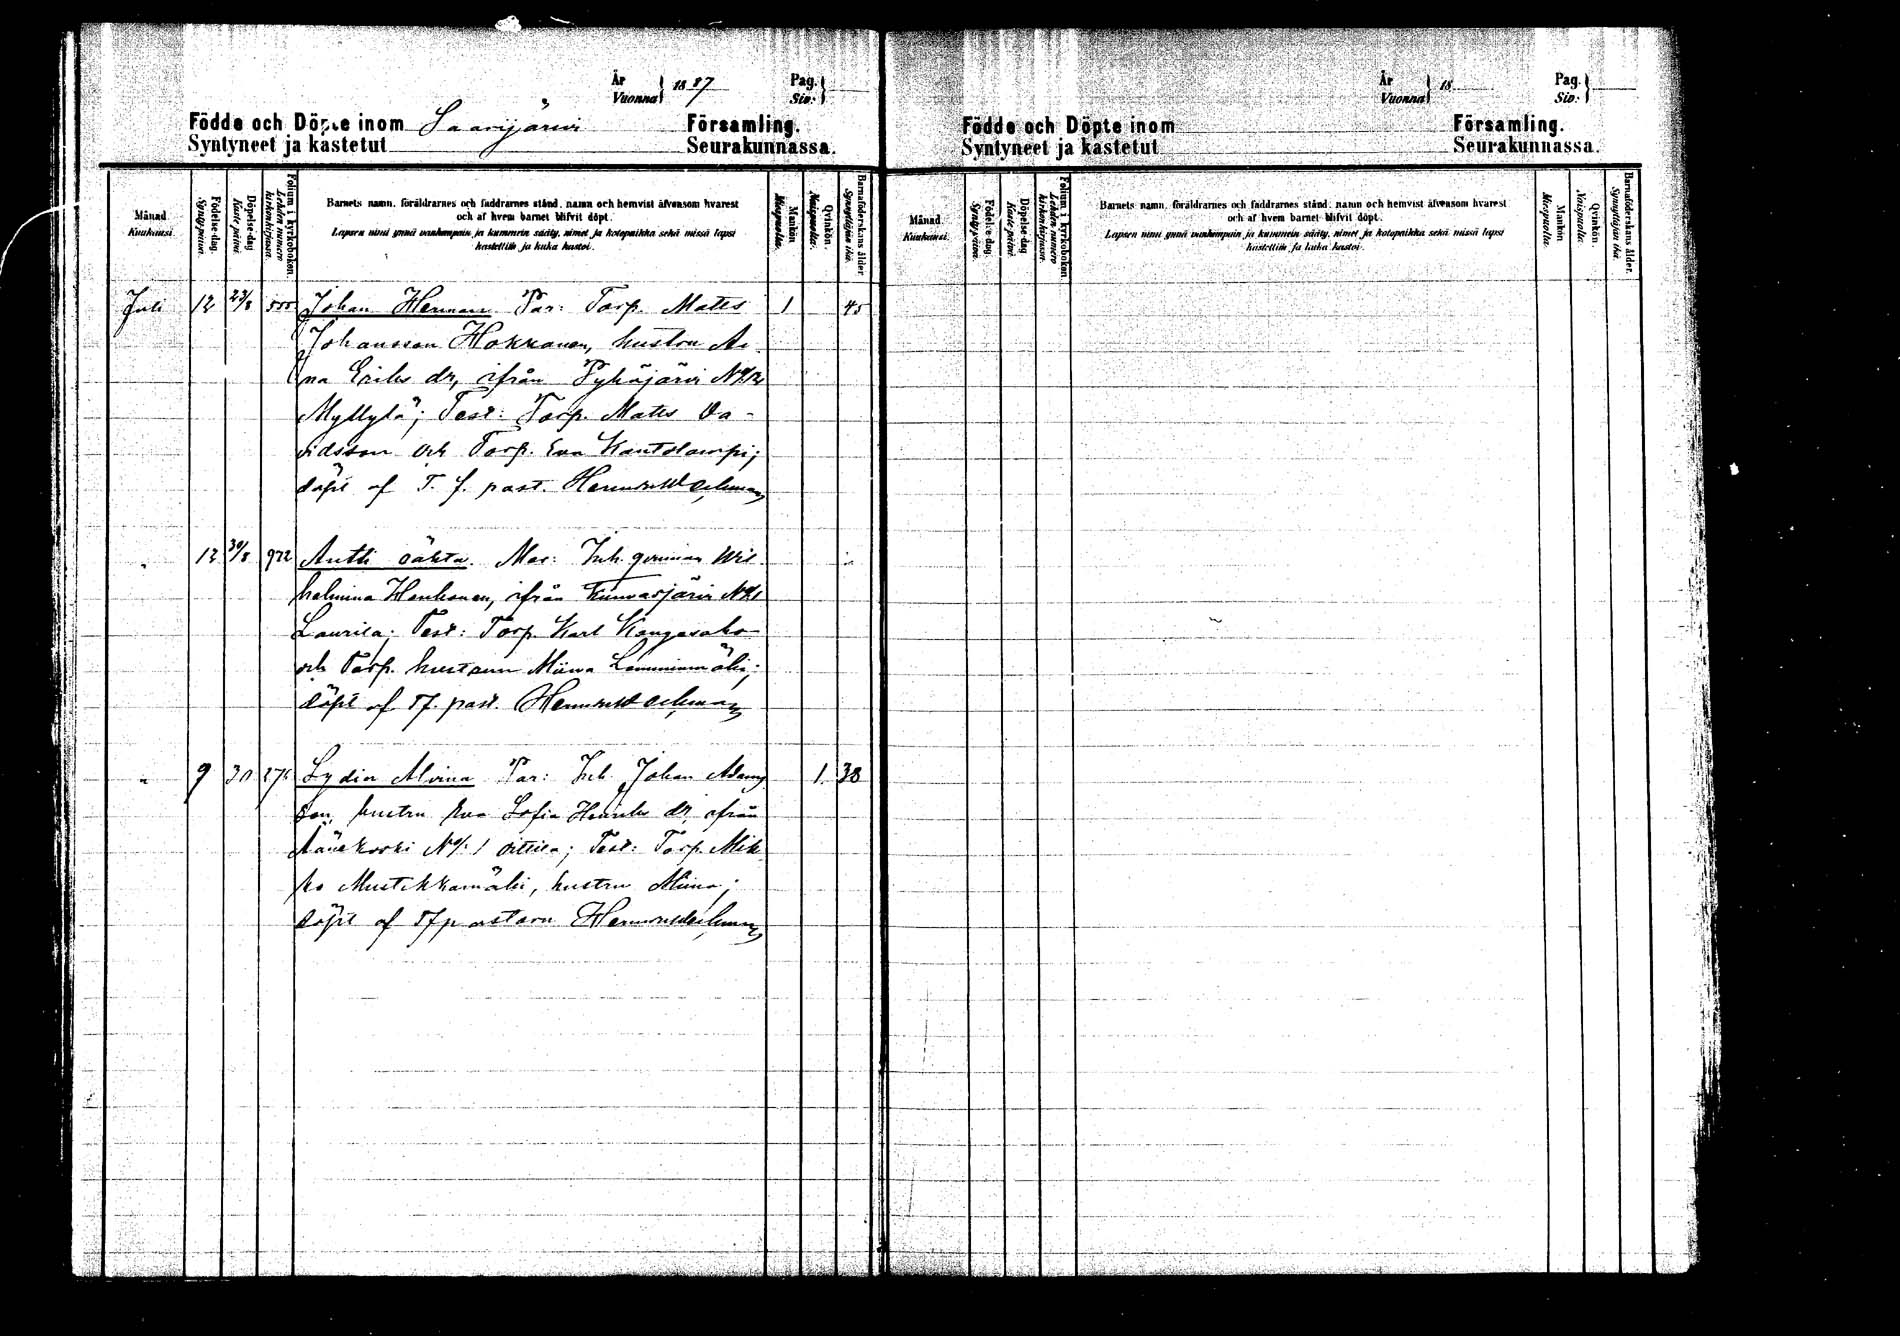 År
Vuonna } 1887 Pag. Siv: }
Födde och Döpte inom Saarijärvi Församling.
Syntyneet ja kastetut Seurakunnassa.
Månad. Kuukausi. Födelse-dag. Syntypäivä. Döpelse-dag Kastepäivä. Folium i kyrkoboken. Lehden numero kirkonkirjassa. Barnets namn, föräldrarnes och faddrarnes stånd, namn och hemvist äfvensom hvarest
och af hvem barnet blifvit döpt.
Lapsen nimi ynnä vanhempain ja kummein sääty, nimet ja kotopaikka sekä missä lapsi
kastettiin ja kuka kastoi.
Mankön Miespuolia. Qvinkön. Naispuolia. Barnaföderskans ålder. Synnyttäjän ikä.
Juli 12 23/8 500 Johan Herman Par: Torp. Matts 1 45
Johansson Hokkanen, hustru An
na Eriks dr, ifrån Pyhäjärvi
Myllylä; Test: Torp. Matts Da-
vidsson och Torp. Eva Kantolampi;
döpt af T. f. past.
" 12 30/8 922 Antti oäkta. Mor: Inh. qvinnan Wil
helmina Honkonen, ifrån
Laurila; Test: Torp. Karl Kangasaho
och Torp. hustrun Miina
döpt af Tf. past.
" 9 30 276 Lydia Alvina Par: Inh. Johan Adams
son, hustru Eva Sofia Henriks dr, ifrån
Äänekoski No 1 ; Test: Torp. Mik
ko Mustikkamäki, hustru Miina; 1. 38
döpt af Tf pastorn
År
Vuonna } 18 Pag. Siv: }
Födde och Döpte inom Församling.
Syntyneet ja kastetut Seurakunnassa.
Månad. Kuukausi. Födelse-dag. Syntypäivä. Döpelse-dag Kastepäivä. Folium i kyrkoboken. Lehden numero kirkonkirjassa. Barnets namn, föräldrarnes och faddrarnes stånd, namn och hemvist äfvensom hvarest
och af hvem barnet blifvit döpt.
Lapsen nimi ynnä vanhempain ja kummein sääty, nimet ja kotopaikka sekä missä lapsi
kastettiin ja kuka kastoi.
Mankön Miespuolia. Qvinkön. Naispuolia. Barnaföderskans ålder. Synnyttäjän ikä.